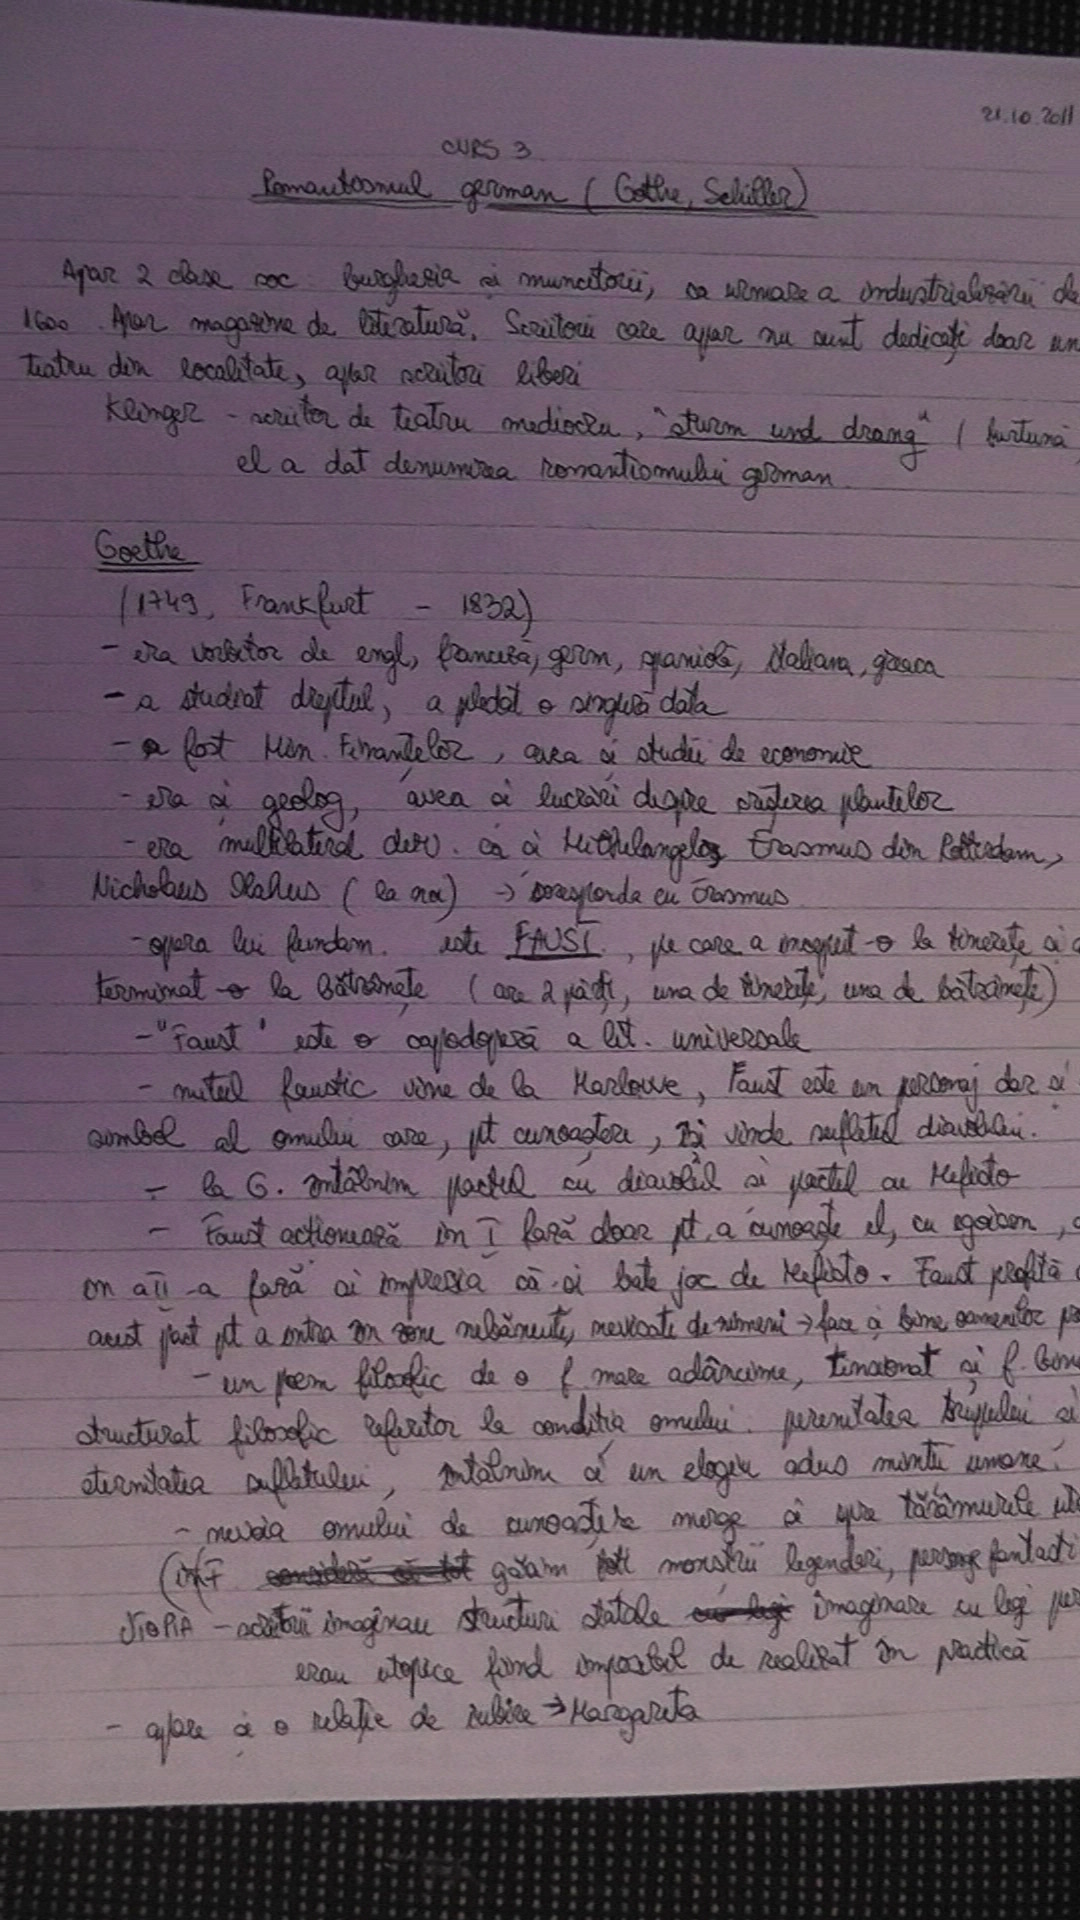 21.10.2011
CURS 3
Romantismul german (Gothe, Schiller)
Apar 2 clase soc. burghezia și muncitorii, ca urmare a industrializării de
1600. Apar magazine de literatură. Scriitorii care apar nu sunt dedicați doar un
teatru din localitate, apar scriitori liberi
Klinger - scriitor de teatru mediocru, "sturm und drang" (furtună
el a dat denumirea romantismului german
Goethe
(1749, Frankfurt - 1832)
- era vorbitor de engl, franceză, germ, spaniolă, italiana, greaca
- a studiat dreptul, a pledat o singură data
- a fost Min. Finanțelor, avea și studii de economie
- era și geolog, avea și lucrări despre creșterea plantelor
- era multilateral dezv. ca și Michelangelo, Erasmus din Rotterdam,
Nicholaus Olahus (la noi) → coresponda cu Erasmus
- opera lui fundam. este FAUST, pe care a început-o la tinerețe și a
terminat-o la bătrânețe (are 2 părți, una de tinerețe, una de bătrânețe)
- "Faust" este o capodoperă a lit. universale
- mitul faustic vine de la Marlowe, Faust este un personaj dar și
simbol al omului care, pt cunoaștere, își vinde sufletul diavolului.
- la G. întâlnim pactul cu diavolul și pactul cu Mefisto
- Faust acționează în I fază doar pt. a cunoaște el, cu egoism,
în a II-a fază ai impresia că-și bate joc de Mefisto. Faust profită
acest pact pt a intra în zone nebănuite, nevizate de nimeni → face și bine oamenilor
- un poem filosofic de o f mare adâncime, tensionat și f. bine
structurat filosofic referitor la condiția omului. perenitatea trupului și
eternitatea sufletului, întâlnim și un elogiu adus minții umane.
- nevoia omului de cunoaștere merge și spre tărâmurile
găsim toți monștrii legendari, personaje fantasti
UTOPIA - scriitorii imaginau structuri statale imaginare cu legi per
erau utopice fiind imposibil de realizat în practică
- apare și o relație de iubire → Margareta